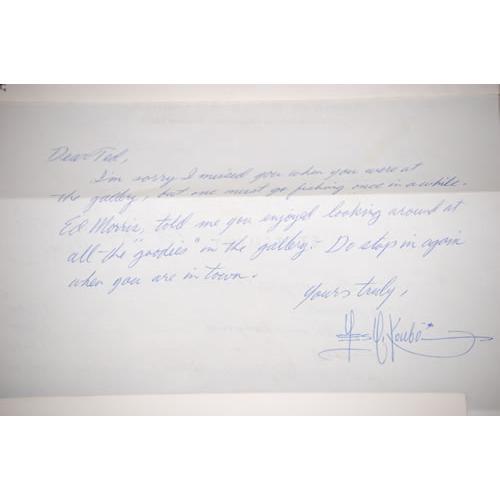 Dear Ted,
I'm sorry I missed you when you were at
the gallery, but one must go fishing once in awhile.
Ed Morris, told me you enjoyed looking around at
all the "goodies" in the gallery. Do stop in again
when you are in town.
Yours truly,
Les C. Kouba